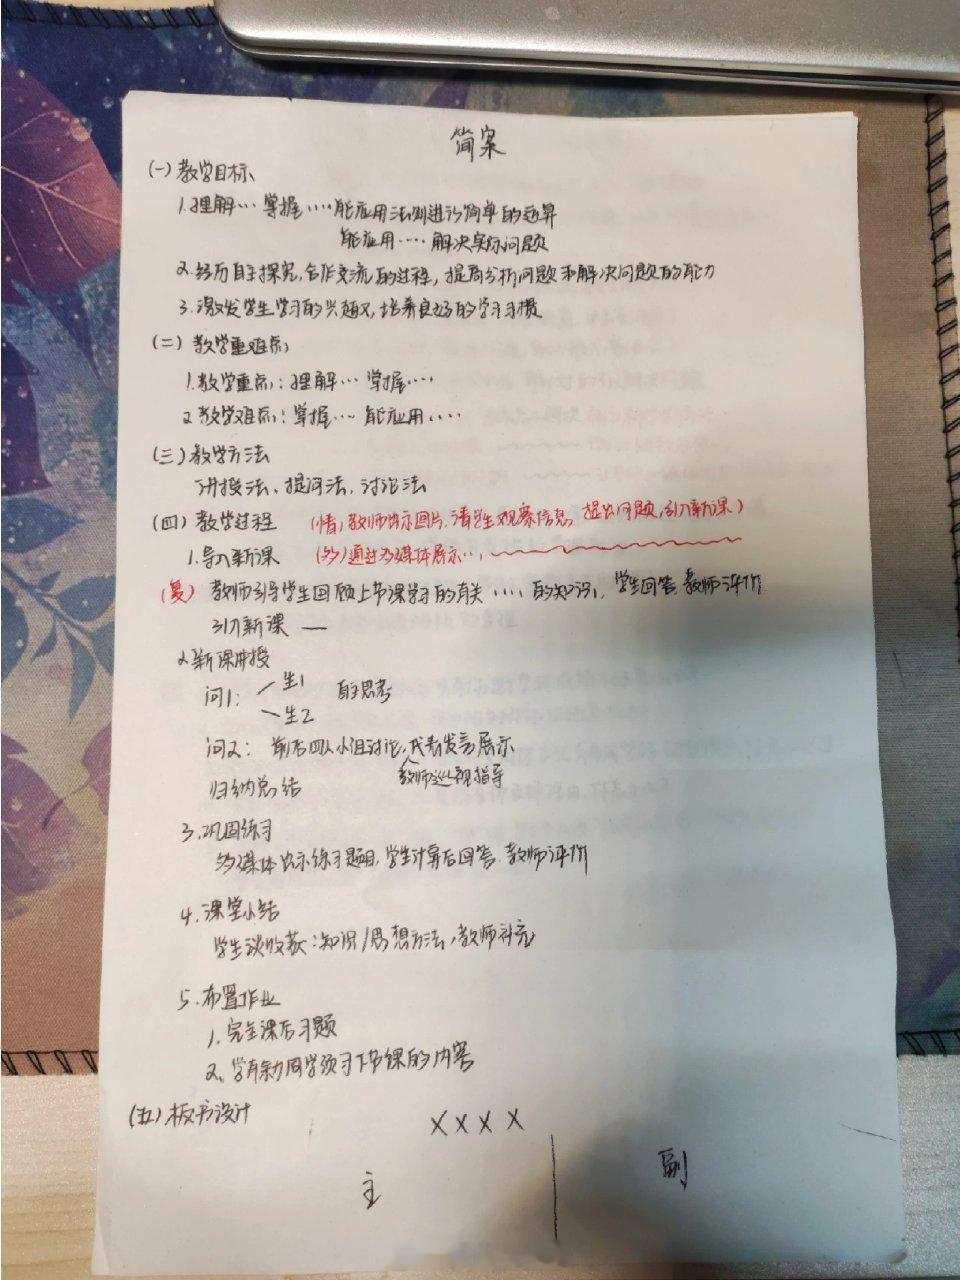 简案
(一)教学目标
1.理解… 掌握….能应用法则进行简单的运算
能应用….解决实际问题
2.经历自主探究,合作交流的过程,提高分析问题和解决问题的能力
3.激发学生学习的兴趣,培养良好的学习习惯
(二)教学重难点
1.教学重点:理解… 掌握….
2.教学难点:掌握… 能应用….
(三)教学方法
讲授法、提问法、讨论法
(四)教学过程 (情)教师出示图片,请学生观察信息,提出问题,引入新课)
1.导入新课 (多)通过多媒体展示…,
(复) 教师引导学生回顾上节课学习的有关….的知识,学生回答,教师评价
引入新课 —
2.新课讲授
问1: 生1 自主思考
生2
问2: 前后四人小组讨论,代表发言展示
教师巡视指导
归纳总结
3.巩固练习
多媒体出示练习题目,学生计算后回答,教师评价
4.课堂小结
学生谈收获:知识/思想方法,教师补充
5.布置作业
1.完主课后习题
2.学有余力同学预习下节课的内容
(五)板书设计
X X X X
主 副